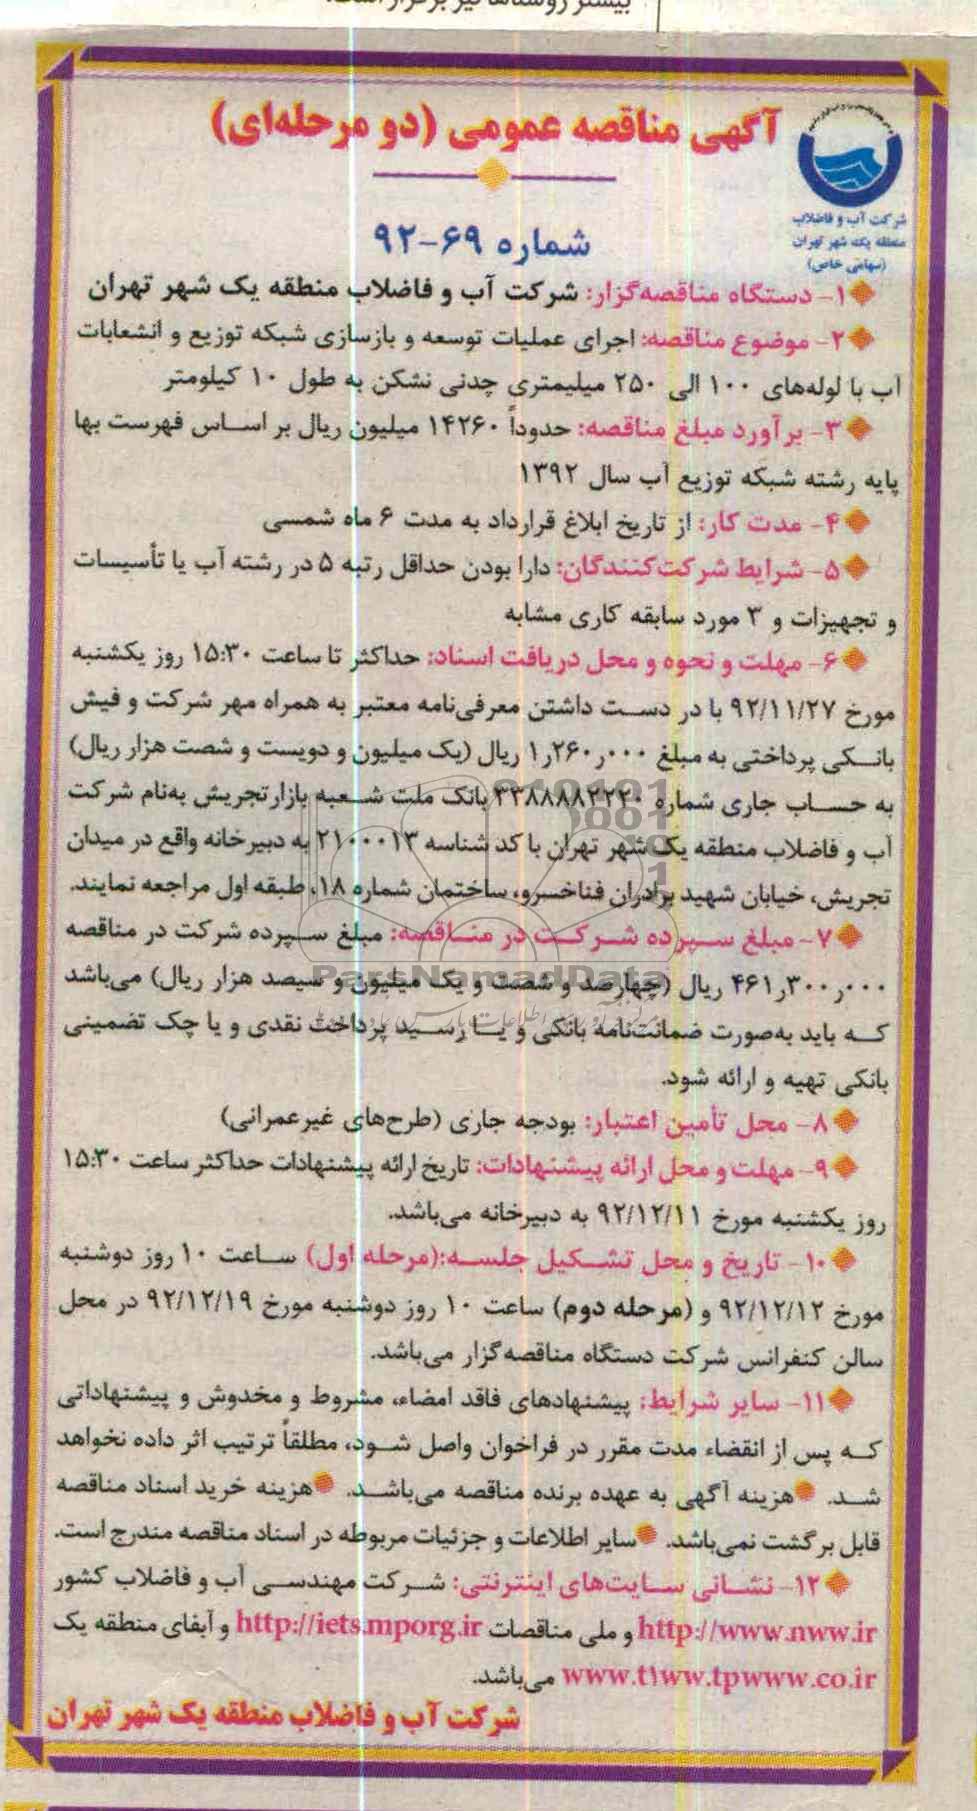 بیشتر روستاها نیز برقرار است.
آگهی مناقصه عمومی (دو مرحله‌ای)
شرکت آب و فاضلاب
منطقه یک شهر تهران
(سهامی خاص)
شماره ۶۹-۹۲
۱- دستگاه مناقصه‌گزار: شرکت آب و فاضلاب منطقه یک شهر تهران
۲- موضوع مناقصه: اجرای عملیات توسعه و بازسازی شبکه توزیع و انشعابات
آب با لوله‌های ۱۰۰ الی ۲۵۰ میلیمتری چدنی نشکن به طول ۱۰ کیلومتر
۳- برآورد مبلغ مناقصه: حدوداً ۱۴۲۶۰ میلیون ریال بر اساس فهرست بها
پایه رشته شبکه توزیع آب سال ۱۳۹۲
۴- مدت کار: از تاریخ ابلاغ قرارداد به مدت ۶ ماه شمسی
۵- شرایط شرکت‌کنندگان: دارا بودن حداقل رتبه ۵ در رشته آب یا تأسیسات
و تجهیزات و ۳ مورد سابقه کاری مشابه
۶- مهلت و نحوه و محل دریافت اسناد: حداکثر تا ساعت ۱۵:۳۰ روز یکشنبه
مورخ ۹۲/۱۱/۲۷ با در دست داشتن معرفی‌نامه معتبر به همراه مهر شرکت و فیش
بانکی پرداختی به مبلغ ۱٫۲۶۰٫۰۰۰ ریال (یک میلیون و دویست و شصت هزار ریال)
به حساب جاری شماره ۳۳۸۸۸۸۲۲۲۰ بانک ملت شعبه بازار تجریش به‌نام شرکت
آب و فاضلاب منطقه یک شهر تهران با کد شناسه ۲۱۰۰۰۱۳ به دبیرخانه واقع در میدان
تجریش، خیابان شهید برادران فناخسرو، ساختمان شماره ۱۸، طبقه اول مراجعه نمایند.
۷- مبلغ سپرده شرکت در مناقصه: مبلغ سپرده شرکت در مناقصه
ParsNamadData
۴۶۱٫۳۰۰٫۰۰۰ ریال (چهارصد و شصت و یک میلیون و سیصد هزار ریال) می‌باشد
که باید به‌صورت ضمانت‌نامه بانکی و یا رسید پرداخت نقدی و یا چک تضمینی
بانکی تهیه و ارائه شود.
۸- محل تأمین اعتبار: بودجه جاری (طرح‌های غیرعمرانی)
۹- مهلت و محل ارائه پیشنهادات: تاریخ ارائه پیشنهادات حداکثر ساعت ۱۵:۳۰
روز یکشنبه مورخ ۹۲/۱۲/۱۱ به دبیرخانه می‌باشد.
۱۰- تاریخ و محل تشکیل جلسه: (مرحله اول) ساعت ۱۰ روز دوشنبه
مورخ ۹۲/۱۲/۱۲ و (مرحله دوم) ساعت ۱۰ روز دوشنبه مورخ ۹۲/۱۲/۱۹ در محل
سالن کنفرانس شرکت دستگاه مناقصه‌گزار می‌باشد.
۱۱- سایر شرایط: پیشنهادهای فاقد امضاء، مشروط و مخدوش و پیشنهاداتی
که پس از انقضاء مدت مقرر در فراخوان واصل شود، مطلقاً ترتیب اثر داده نخواهد
شد. هزینه آگهی به عهده برنده مناقصه می‌باشد. هزینه خرید اسناد مناقصه
قابل برگشت نمی‌باشد. سایر اطلاعات و جزئیات مربوطه در اسناد مناقصه مندرج است.
۱۲- نشانی سایت‌های اینترنتی: شرکت مهندسی آب و فاضلاب کشور
http://www.nww.ir و ملی مناقصات http://iets.mporg.ir و آبفای منطقه یک
www.t1ww.tpwww.co.ir می‌باشد.
شرکت آب و فاضلاب منطقه یک شهر تهران